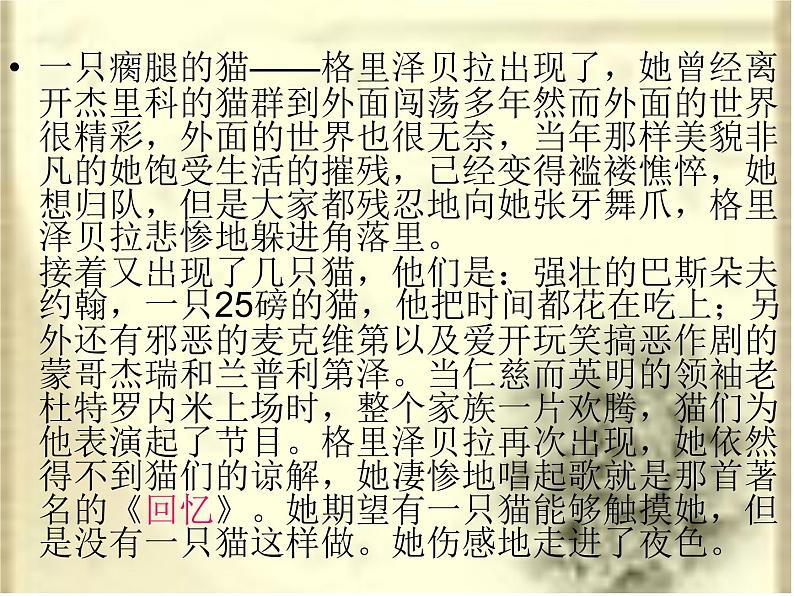 • 一只瘸腿的猫——格里泽贝拉出现了，她曾经离
开杰里科的猫群到外面闯荡多年然而外面的世界
很精彩，外面的世界也很无奈，当年那样美貌非
凡的她饱受生活的摧残，已经变得褴褛憔悴，她
想归队，但是大家都残忍地向她张牙舞爪，格里
泽贝拉悲惨地躲进角落里。
接着又出现了几只猫，他们是：强壮的巴斯朵夫
约翰，一只25磅的猫，他把时间都花在吃上；另
外还有邪恶的麦克维第以及爱开玩笑搞恶作剧的
蒙哥杰瑞和兰普利第泽。当仁慈而英明的领袖老
杜特罗内米上场时，整个家族一片欢腾，猫们为
他表演起了节目。格里泽贝拉再次出现，她依然
得不到猫们的谅解，她凄惨地唱起歌就是那首著
名的《回忆》。她期望有一只猫能够触摸她，但
是没有一只猫这样做。她伤感地走进了夜色。